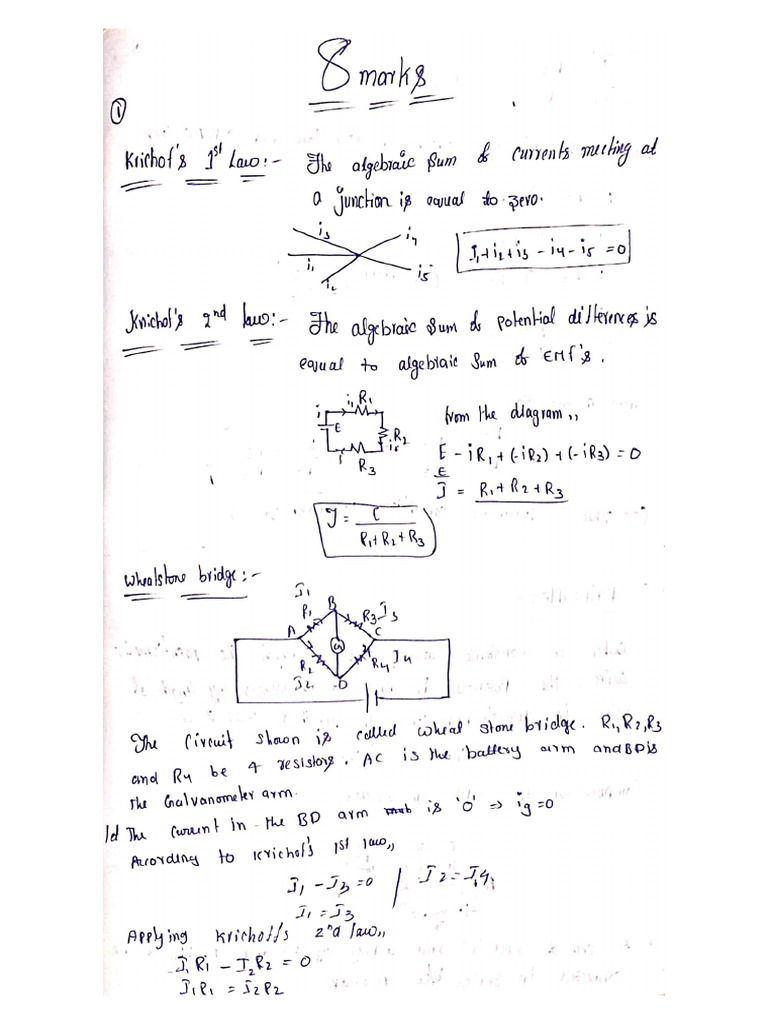 8 marks
①
Krichof's 1st Law:- The algebraic sum of currents meeting at
a junction is equal to zero.
i3
i4
i1
i2
i5
I1+i2+i3-i4-i5=0
Krichof's 2nd law:- The algebraic sum of potential differences is
equal to algebraic sum of EMf's.
i i1 R1
E
R2
i
R3
from the diagram,,
E-iR1+(-iR2)+(-iR3)=0
E
I = R1+R2+R3
I = E
R1+R2+R3
Whealstone bridge:-
I1
R1 B R3 I3
A G C
R2 R4 I4
I2 D
The Circuit shown is called wheal stone bridge. R1,R2,R3
and R4 be 4 resistors. AC is the battery arm and BD is
the Galvanometer arm.
Id The Current in the BD arm is '0' ⇒ ig=0
According to Krichof's 1st law,,
I1-I3=0 / I2=I4
I1=I3
Applying Kricholf's 2nd law,,
I1R1-I2R2=0
I1R1=I2R2